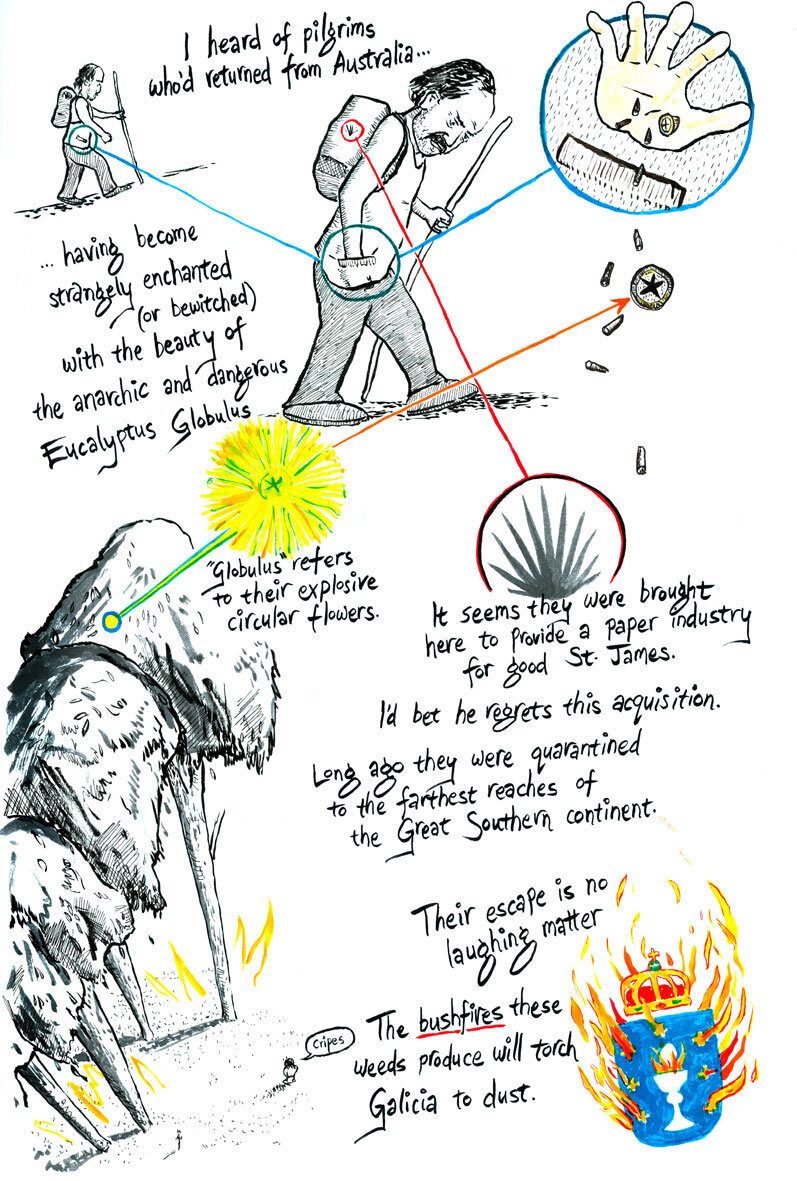 I heard of pilgrims
who'd returned from Australia...
... having become
strangely enchanted
(or bewitched)
with the beauty of
the anarchic and dangerous
Eucalyptus Globulus
"Globulus" refers
to their explosive
circular flowers.
It seems they were brought
here to provide a paper industry
for good St. James.
I'd bet he regrets this acquisition.
Long ago they were quarantined
to the farthest reaches of
the Great Southern continent.
Their escape is no
laughing matter
Cripes
The bushfires these
weeds produce will torch
Galicia to dust.